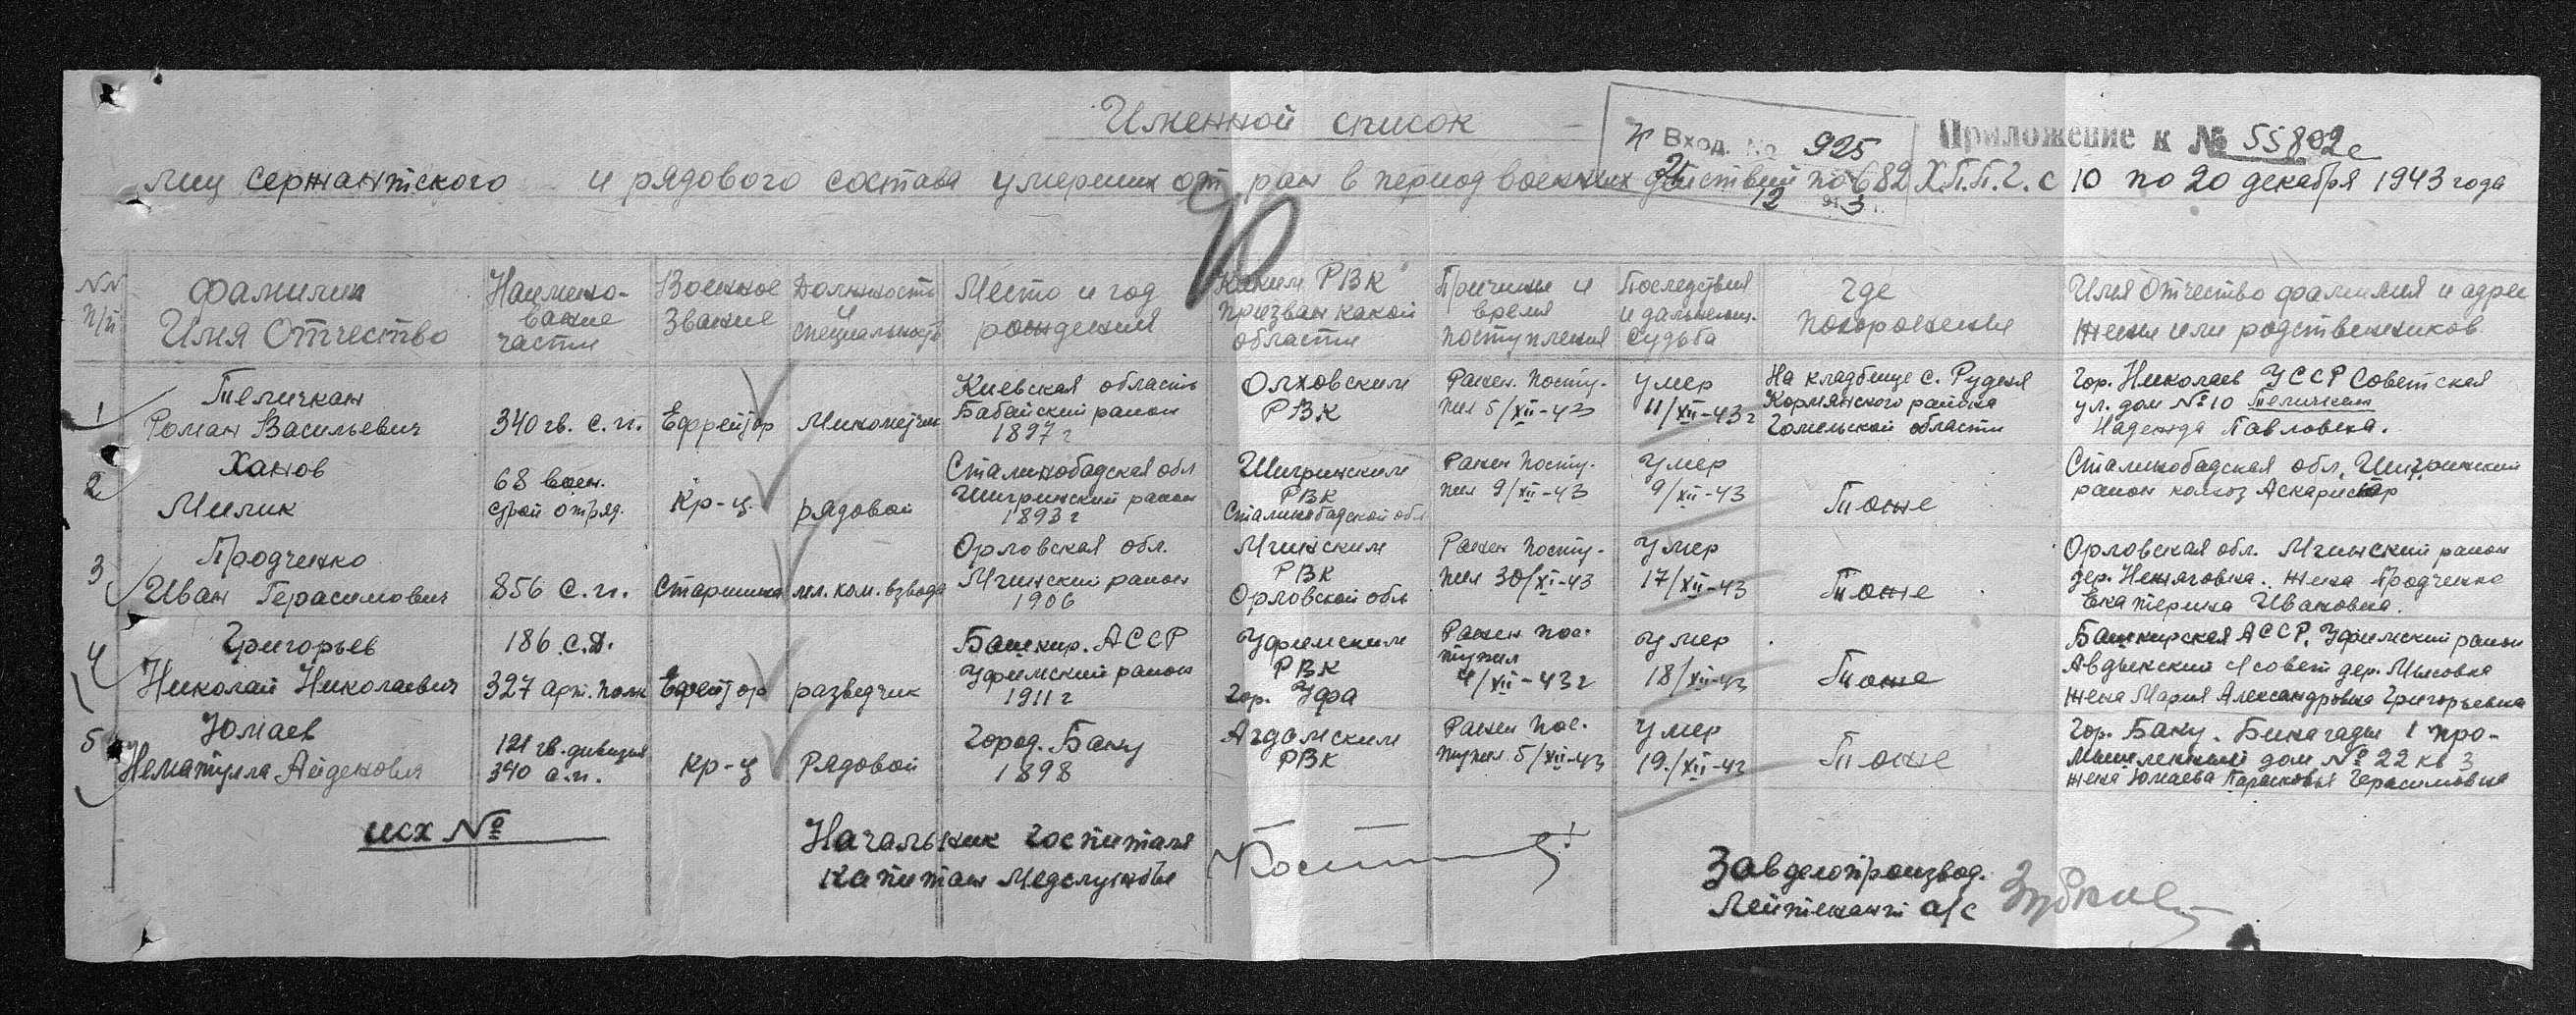 Именной список
Вход. № 925
Приложение к № 55802с
лиц сержантского и рядового состава умерших от ран в период военных действий по 682 Х.П.П.Г. с 10 по 20 декабря 1943 года
25
12 943
NN п/п
Фамилия Имя Отчество
Наименование части
Военное Звание
Должность и специальность
Место и год рождения
Каким РВК призван какой области
Причины и время поступления
Последствия и дальнейш. судьба
Где похоронены
Имя Отчество фамилия и адрес жены или родственников
1
Теличкан
Роман Васильевич
340 гв. с.п.
Ефрейтор
Минометчик
Киевская область
Бабайский район
1897 г
Ольховским
РВК
Ранен посту-
пил 5/XII-43
Умер
11/XII-43 г
На кладбище с. Рудня
Кормянского района
Гомельской области
Гор. Николаев УССР Советская
ул. дом №10 Теличкан
Надежда Павловна.
2
Ханов
Милик
68 воен.
строй отряд.
Кр-ц.
рядовой
Сталинобадская обл
Шигринский район
1893 г
Шигринским
РВК
Сталинобадской обл
Ранен посту-
пил 9/XII-43
Умер
9/XII-43
Тоже
Сталинобадская обл. Шигринский
район колхоз
3
Продченко
Иван Герасимович
856 с.п.
Старшина
мл. ком. взвода
Орловская обл.
Мглинский район
1906
Мглинским
РВК
Орловской обл
Ранен посту-
пил 30/XI-43
Умер
17/XII-43
Тоже
Орловская обл. Мглинский район
дер. Нежаговка. жена Продченко
Екатерина Ивановна.
4
Григорьев
Николай Николаевич
186 с.д.
327 арт. полк
Ефрейтор
разведчик
Башкир. АССР
Уфимский район
1911 г
Уфимским
РВК
гор. Уфа
Ранен пос-
тупил
4/XII-43 г
Умер
18/XII-43
Тоже
Башкирская АССР. Уфимский район
совет дер. Мысовка
жена Мария Александровна Григорьевна
5
Юмаев
Нематулла Айденович
121 гв. дивизия
340 с.п.
кр-ц
Рядовой
Город. Баку
1898
Агдамским
РВК
Ранен пос-
тупил 5/XII-43
Умер
19/XII-43
Тоже
Гор. Баку. Бинагады 1 про-
мышленный дом № 22 кв 3
жена Юмаева Парасковья Герасимовна
исх №
Начальник госпиталя
капитан Медслужбы
Зав делопроизвод.
Лейтенант а/с